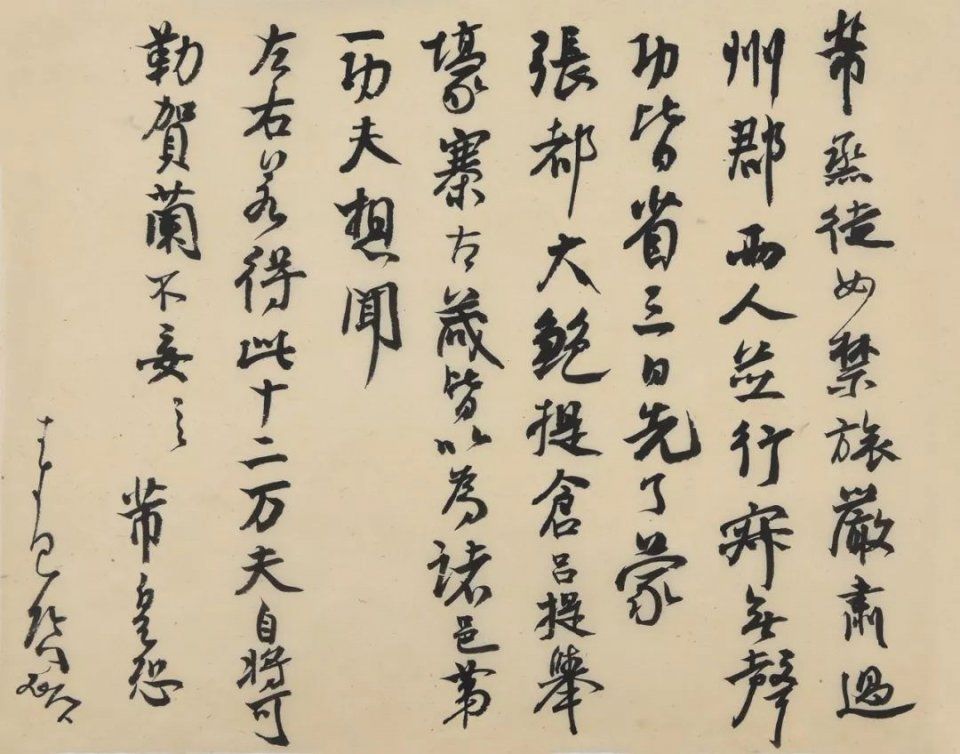 芾烝徒如禁旅嚴肅過
州郡兩人並行寂無聲
功皆省三日先了蒙
張都大鮑提倉呂提舉
壕寨左藏皆以為諸邑第
一功夫想聞
左右若得此十二万夫自將可
勒賀蘭不妄々芾皇恐